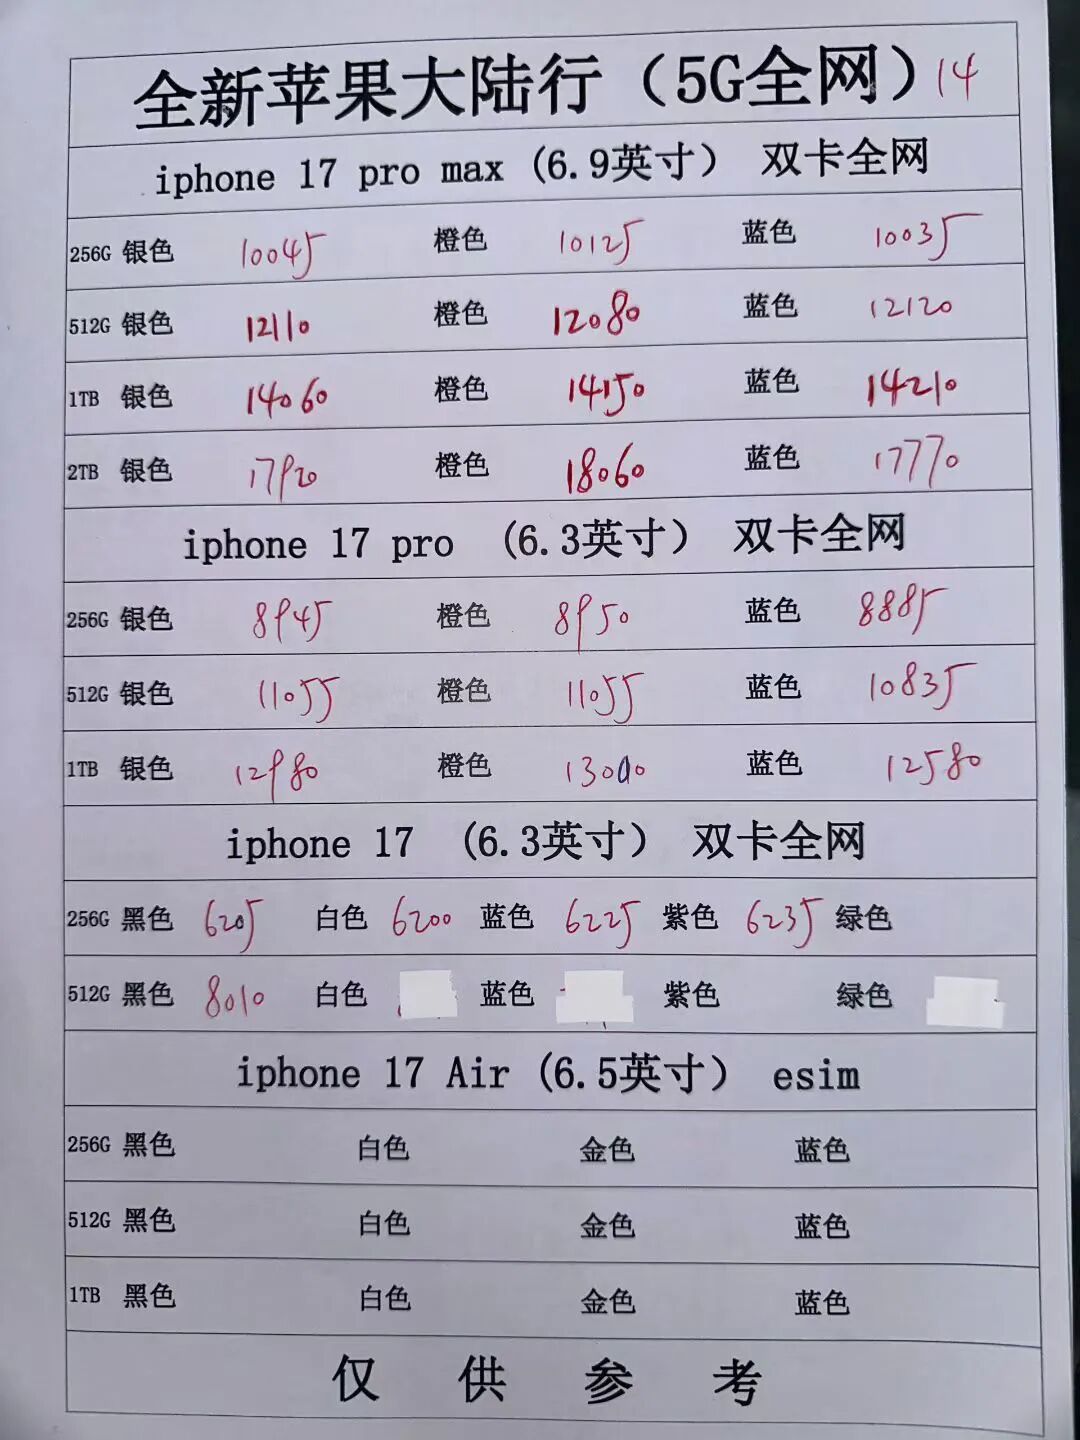 全新苹果大陆行（5G全网）14
iphone 17 pro max (6.9英寸） 双卡全网
256G 银色 10045 橙色 10125 蓝色 10035
512G 银色 12110 橙色 12080 蓝色 12120
1TB 银色 14060 橙色 14150 蓝色 14210
2TB 银色 17920 橙色 18060 蓝色 17770
iphone 17 pro （6.3英寸） 双卡全网
256G 银色 8945 橙色 8950 蓝色 8885
512G 银色 11055 橙色 11055 蓝色 10835
1TB 银色 12980 橙色 13000 蓝色 12580
iphone 17 （6.3英寸） 双卡全网
256G 黑色 6205 白色 6200 蓝色 6225 紫色 6235 绿色
512G 黑色 8010 白色 蓝色 紫色 绿色
iphone 17 Air (6.5英寸） esim
256G 黑色 白色 金色 蓝色
512G 黑色 白色 金色 蓝色
1TB 黑色 白色 金色 蓝色
仅 供 参 考